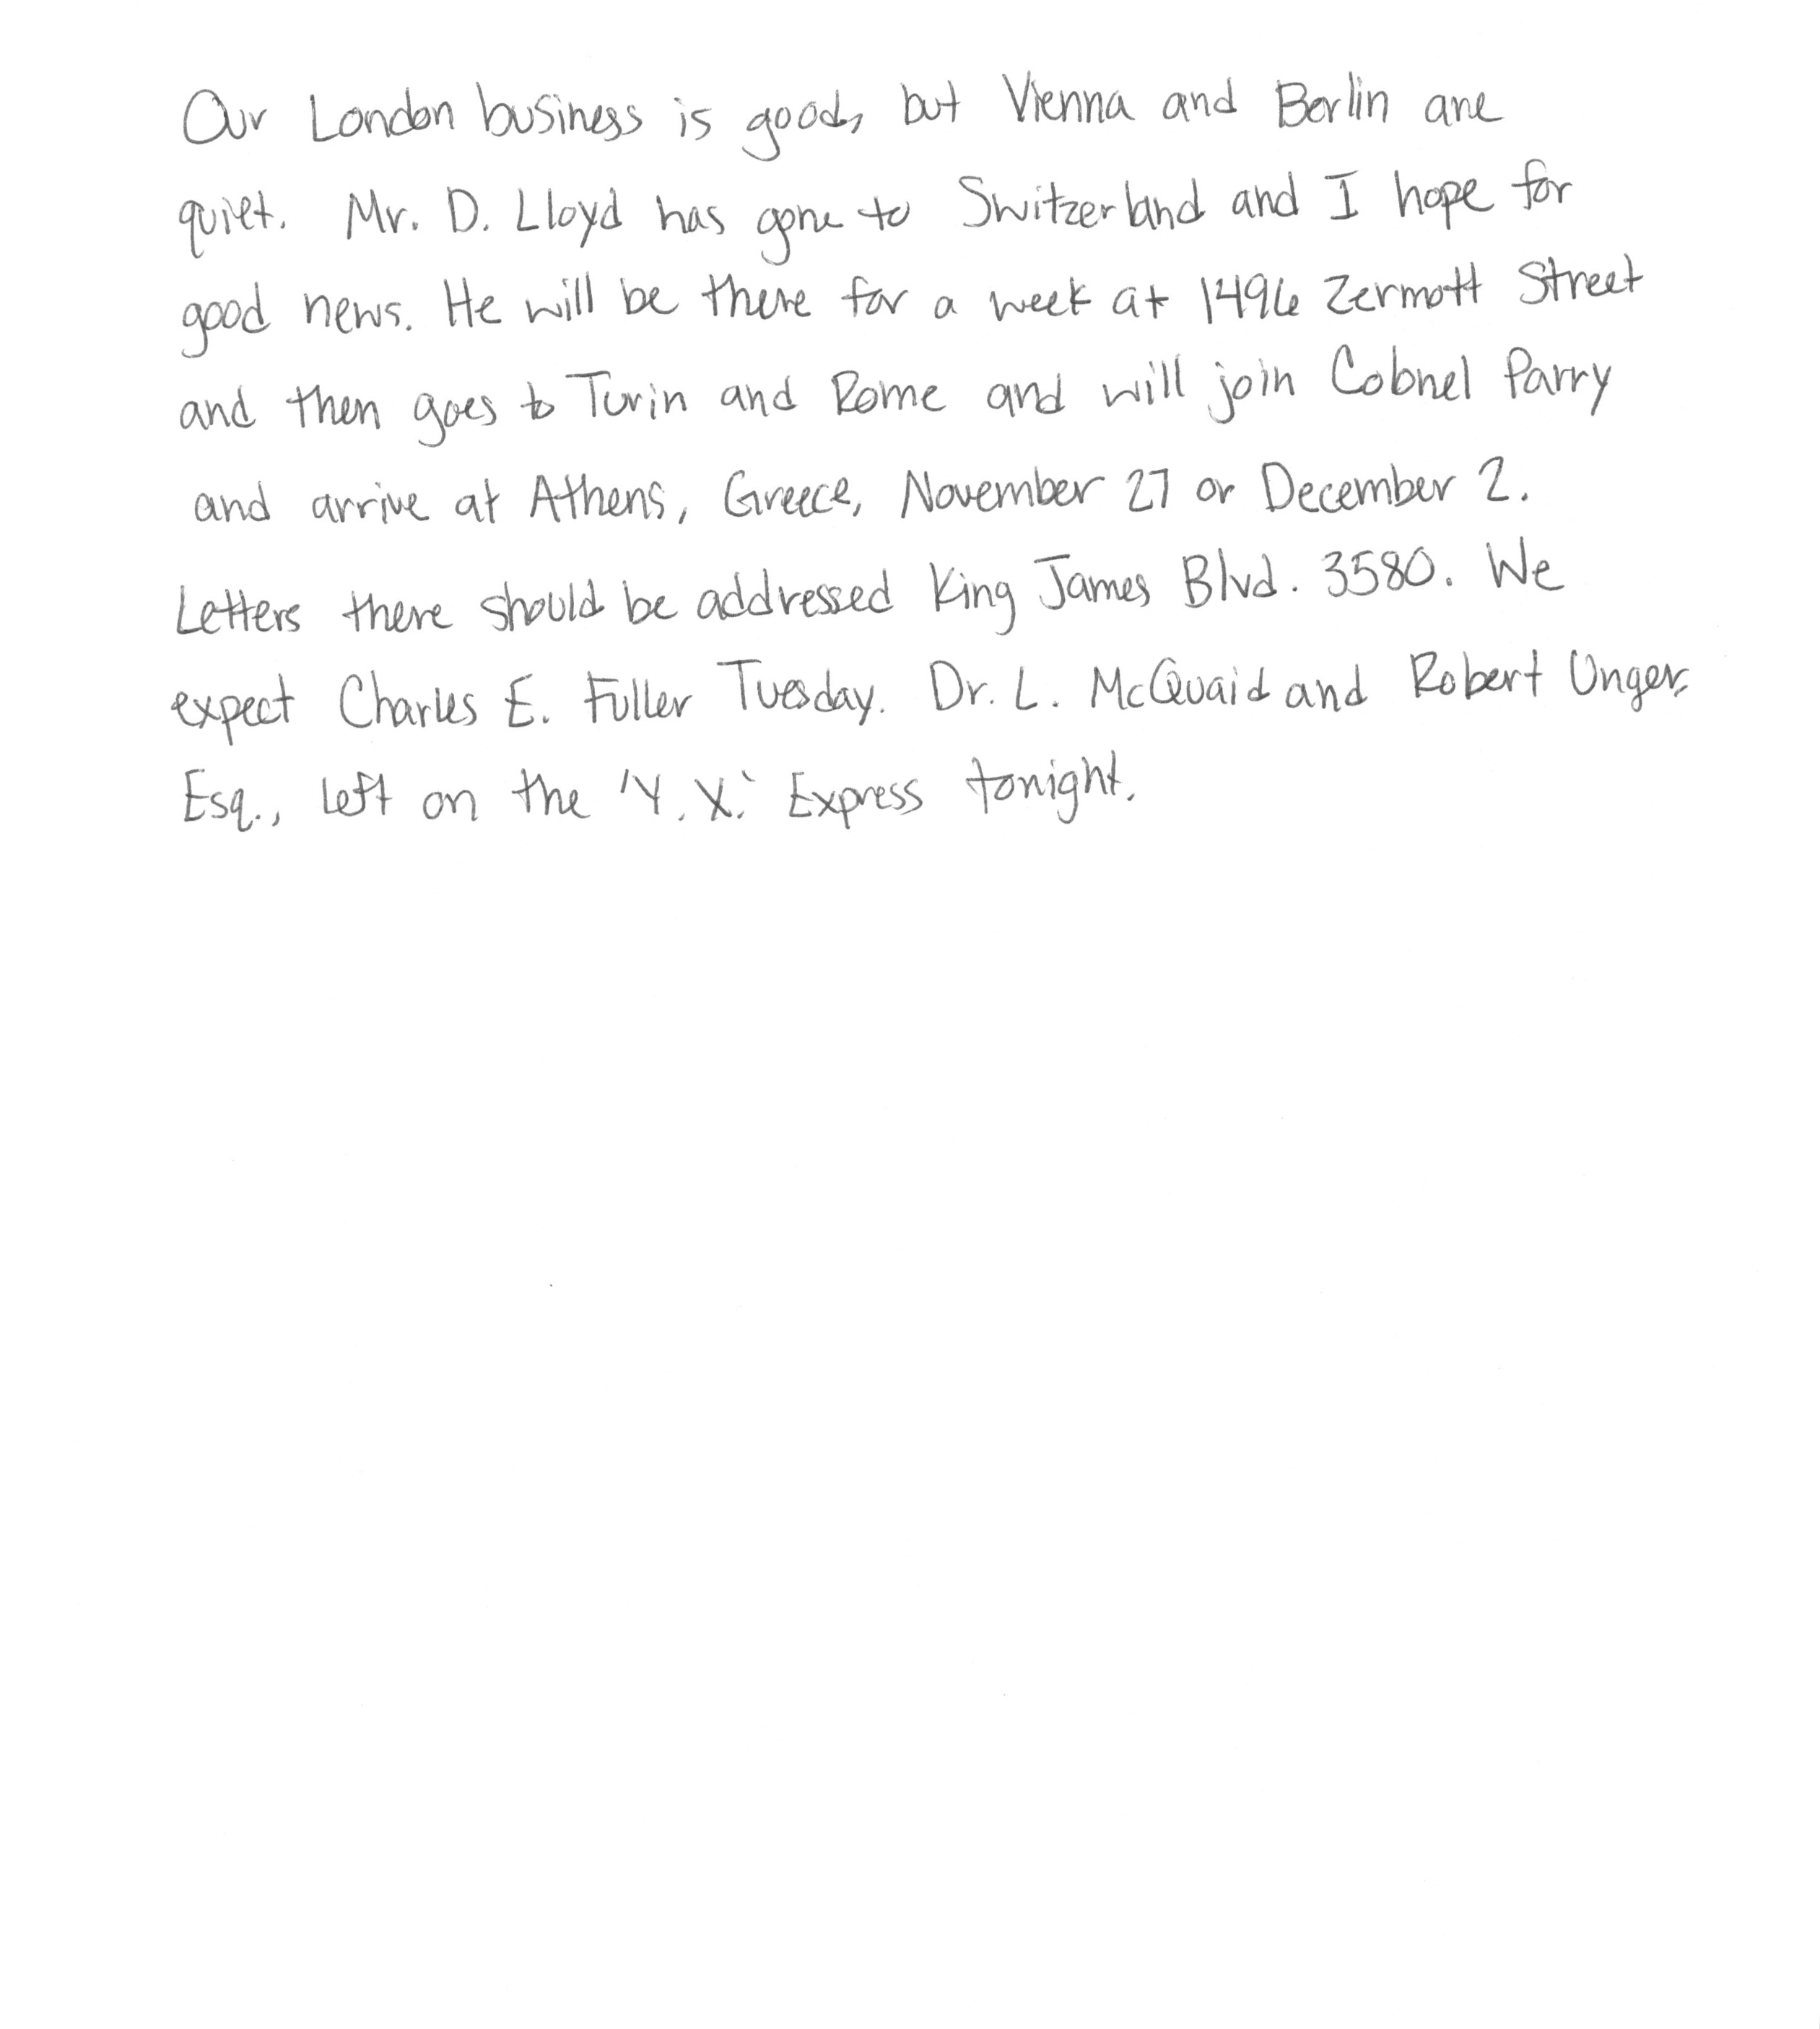 Our London business is good, but Vienna and Berlin are
quiet. Mr. D. Lloyd has gone to Switzerland and I hope for
good news. He will be there for a week at 1496 Zermott Street
and then goes to Turin and Rome and will join Colonel Parry
and arrive at Athens, Greece, November 27 or December 2.
Letters there should be addressed King James Blvd. 3580. We
expect Charles E. Fuller Tuesday. Dr. L. McQuaid and Robert Unger,
Esq., left on the 'Y. X.' Express tonight.